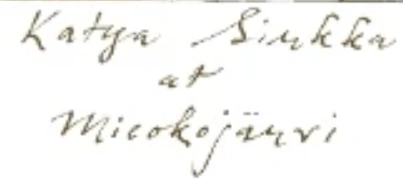 Katya Sirkka
at
Mieskojärvi